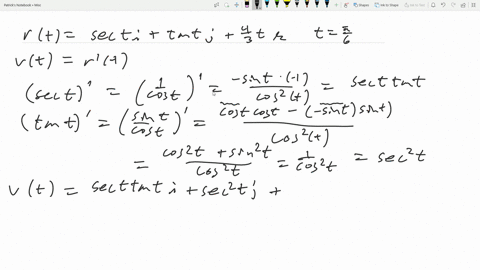 Patrick's Notebook » Misc
r(t) = sect i + tant j + 4/3 t k    t = π/6
v(t) = r'(t)
(sect)' = (1/cost)' = -sint·(-1)/cos²(t) = sect tant
(tant)' = (sint/cost)' = cost cost - (-sint)sint)/cos²(t)
= cos²t + sin²t/cos²t = 1/cos²t = sec²t
v(t) = sect tant i + sec²t j +